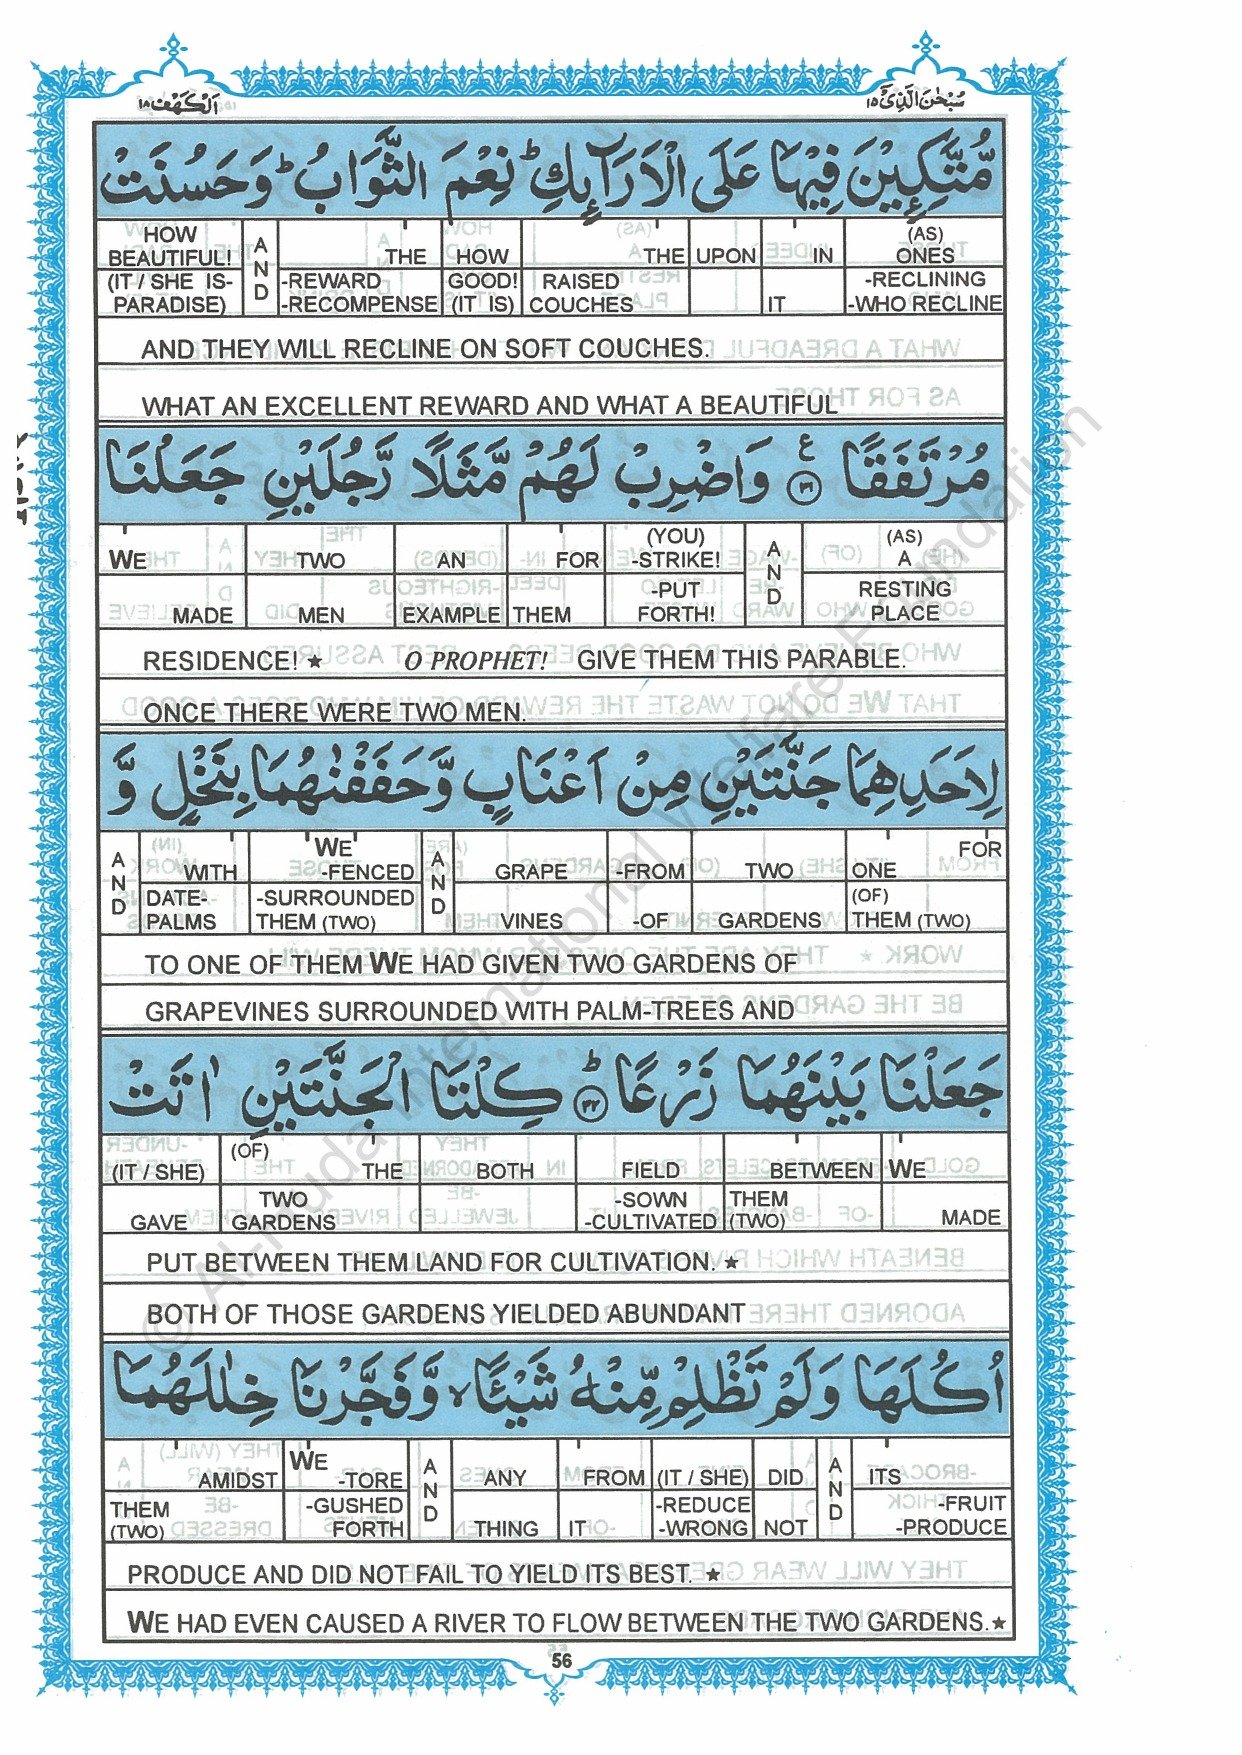 اَلْكَهْف ١٨
سُبْحٰنَ الَّذِیْۤ ١٥
مُّتَّكِـِٕیْنَ فِیْهَا عَلَى الْاَرَآىِٕكِ ؕ نِعْمَ الثَّوَابُ ؕ وَ حَسُنَتْ
HOW BEAUTIFUL! (IT / SHE IS-PARADISE)
AND
THE -REWARD -RECOMPENSE
HOW GOOD! (IT IS)
THE RAISED COUCHES
UPON
IN IT
(AS) ONES -RECLINING -WHO RECLINE
AND THEY WILL RECLINE ON SOFT COUCHES.
WHAT AN EXCELLENT REWARD AND WHAT A BEAUTIFUL
مُرْتَفَقًا ۟ع ٣١ وَاضْرِبْ لَهُمْ مَّثَلًا رَّجُلَیْنِ جَعَلْنَا
WE MADE
TWO MEN
AN EXAMPLE
FOR THEM
(YOU) -STRIKE! -PUT FORTH!
AND
(AS) A RESTING PLACE
RESIDENCE! ★ O PROPHET! GIVE THEM THIS PARABLE.
ONCE THERE WERE TWO MEN.
لِاَحَدِهِمَا جَنَّتَیْنِ مِنْ اَعْنَابٍ وَّ حَفَفْنٰهُمَا بِنَخْلٍ وَّ
AND
WITH DATE-PALMS
WE -FENCED -SURROUNDED THEM (TWO)
AND
GRAPE VINES
-FROM -OF
TWO GARDENS
FOR ONE (OF) THEM (TWO)
TO ONE OF THEM WE HAD GIVEN TWO GARDENS OF
GRAPEVINES SURROUNDED WITH PALM-TREES AND
جَعَلْنَا بَیْنَهُمَا زَرْعًا ؕ ٣٢ كِلْتَا الْجَنَّتَیْنِ اٰتَتْ
(IT / SHE) GAVE
(OF) THE TWO GARDENS
BOTH
FIELD -SOWN -CULTIVATED
BETWEEN THEM (TWO)
WE MADE
PUT BETWEEN THEM LAND FOR CULTIVATION. ★
BOTH OF THOSE GARDENS YIELDED ABUNDANT
اُكُلَهَا وَ لَمْ تَظْلِمْ مِّنْهُ شَیْـًٔا ۙ وَّ فَجَّرْنَا خِلٰلَهُمَا
AMIDST THEM (TWO)
WE -TORE -GUSHED FORTH
AND
ANY THING
FROM IT
(IT / SHE) -REDUCE -WRONG
DID NOT
AND
ITS -FRUIT -PRODUCE
PRODUCE AND DID NOT FAIL TO YIELD ITS BEST. ★
WE HAD EVEN CAUSED A RIVER TO FLOW BETWEEN THE TWO GARDENS.★
56
© Al-Huda International Welfare Foundation